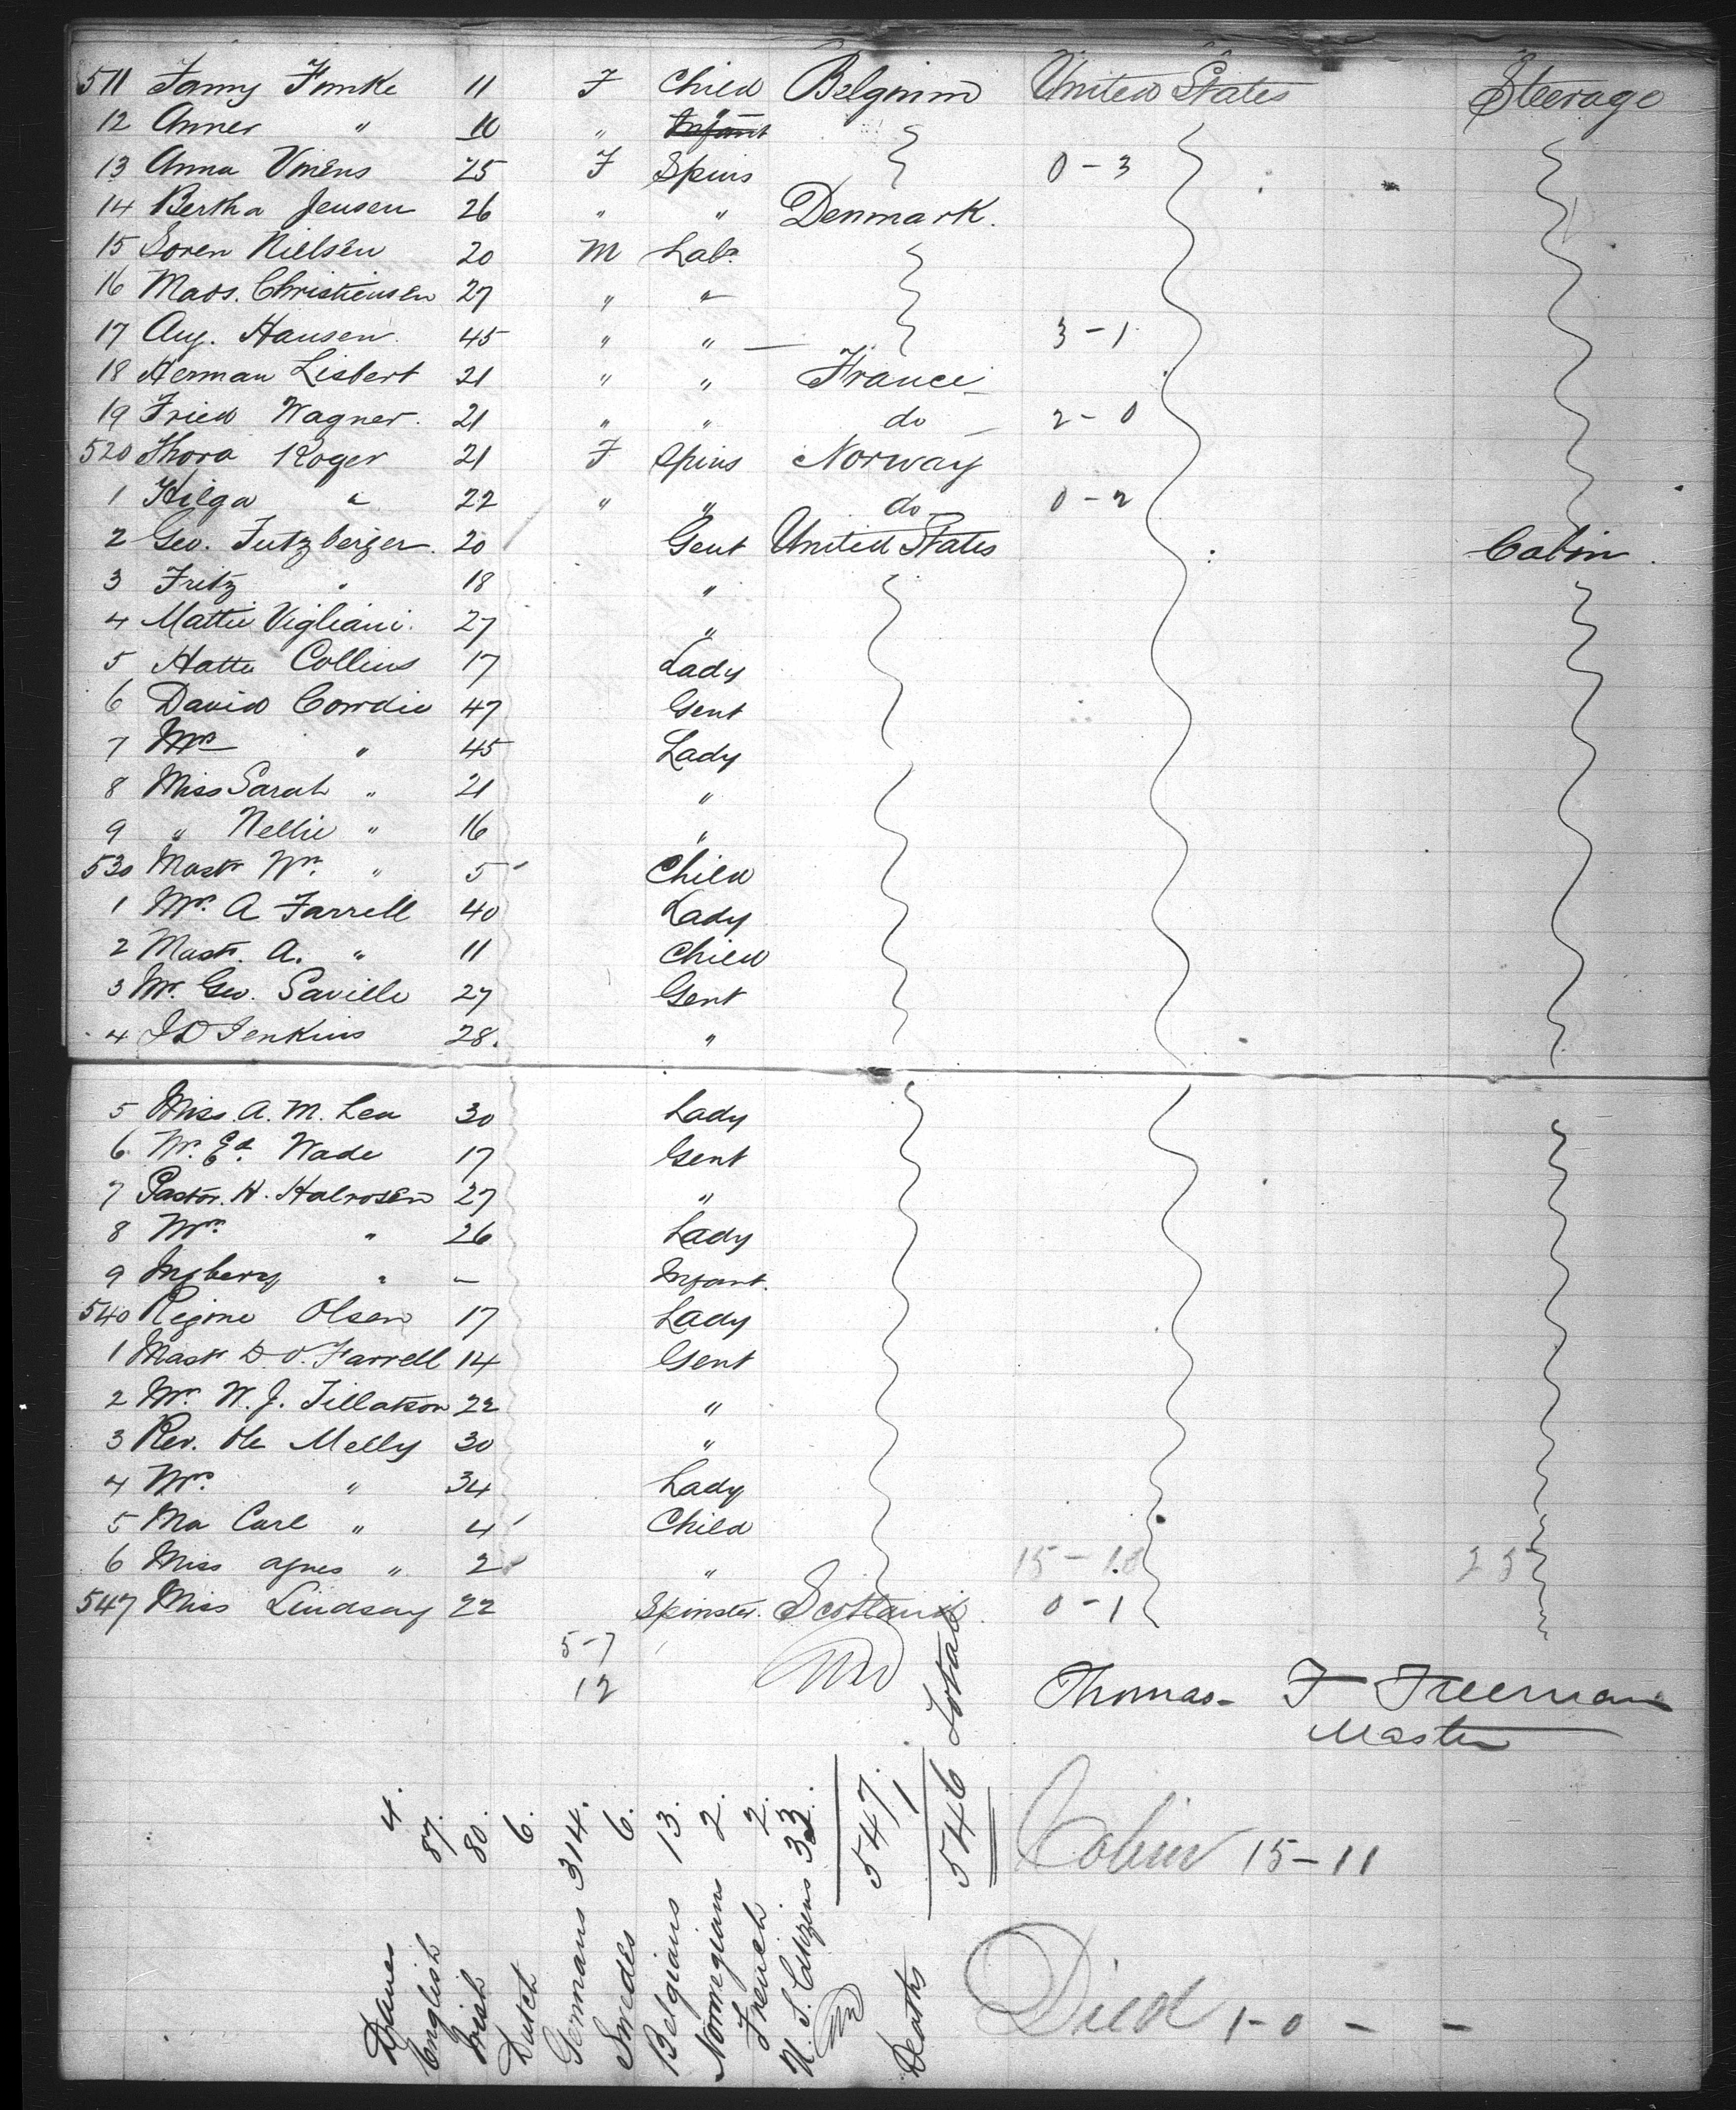 511 Fanny Funke 11 F Child Belgium United States Steerage
12 Anner " 10 " Infant
13 Anna Vmens 25 F Spins 0-3
14 Bertha Jensen 26 " " Denmark.
15 Soren Nielsen 20 M Labr
16 Mads. Christiensen 27 " "
17 Aug. Hansen. 45 " " 3-1
18 Herman Lisbert 21 " " France
19 Fried Wagner. 21 " " do 2-0
520 Thora Roger 21 F Spins Norway
1 Hilga " 22 " " do 0-2
2 Geo. Futzberger. 20 Gent United States Cabin.
3 Fritz " 18 "
4 Mattie Vigliani. 27 "
5 Hatte Collins 17 Lady
6 David Cowdie 47 Gent
7 Mrs " 45 Lady
8 Miss Sarah " 21 "
9 " Nellie " 16 "
530 Mastr Wm. " 5 Child
1 Mrs. A Farrell 40 Lady
2 Mastr. A. " 11 Child
3 Mr. Geo. Saville 27 Gent
4 J D Jenkins 28. "
5 Miss. A. M. Lea 30 Lady
6 Mr. Ed. Wade 17 Gent
7 Pastor. H. Halrosen 27 "
8 Mrs " 26 Lady
9 Ingberg " — Infant.
540 Regine Olsen 17 Lady
1 Mastr D. O. Farrell 14 Gent
2 Mr. W. J. Tillatson 22 "
3 Rev. Ole Melly 30 "
4 Mrs. " 34 Lady
5 Ma Carl " 4 Child
6 Miss agnes " 2 " 15-18 25
547 Miss Lindsay 22 Spinster. Scotland 0-1
5-7
12
Thomas F Freeman
Master
Danes 4.
English 87.
Irish 80.
Dutch 6.
Germans 314.
Swedes 6.
Belgians 13.
Norwegians 2.
French 2.
U. S. Citizens 33.
547.
Deaths 1
546 Total
Cabin 15-11
Died 1-0 - -